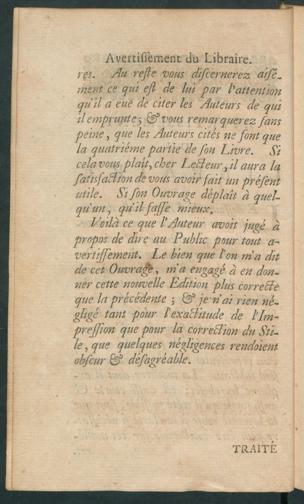 Avertiſſement du Libraire.
res. Au reſte vous diſcernerez aiſé-
ment ce qui eſt de lui par l'attention
qu'il a euë de citer les Auteurs de qui
il emprunte; & vous remarquerez ſans
peine, que les Auteurs cités ne font que
la quatriéme partie de ſon Livre. Si
cela vous plaît, cher Lecteur, il aura la
ſatisfaction de vous avoir fait un préſent
utile. Si ſon Ouvrage déplaît à quel-
qu'un, qu'il faſſe mieux.
Voilà ce que l'Auteur avoit jugé à
propos de dire au Public pour tout a-
vertiſſement. Le bien que l'on m'a dit
de cet Ouvrage, m'a engagé à en don-
ner cette nouvelle Edition plus correcte
que la précédente; & je n'ai rien né-
gligé tant pour l'exactitude de l'Im-
preſſion que pour la correction du Sti-
le, que quelques négligences rendoient
obſcur & déſagréable.
TRAITÉ